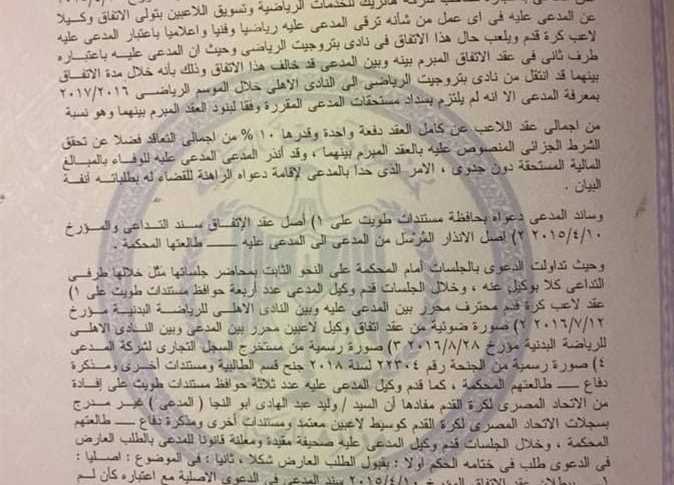 عن المدعى عليه فى اى عمل من شأنه ترقى المدعى عليه رياضيا وفنيا واعلاميا باعتبار المدعى عليه
لاعب كرة قدم ويلعب حال هذا الاتفاق فى نادى بتروجيت الرياضى وحيث ان المدعى عليه باعتباره
طرف ثانى فى عقد الاتفاق المبرم بينه وبين المدعى قد خالف هذا الاتفاق وذلك بأنه خلال مدة الاتفاق
بينهما قد انتقل من نادى بتروجيت الرياضى الى النادى الاهلى خلال الموسم الرياضى ٢٠١٧/٢٠١٦
بمعرفة المدعى الا انه لم يلتزم بسداد مستحقات المدعى المقررة وفقا لبنود العقد المبرم بينهما وهو نسبة
من اجمالى عقد اللاعب عن كامل العقد دفعة واحدة وقدرها ١٠ % من اجمالى التعاقد فضلا عن تحقق
الشرط الجزائى المنصوص عليه بالعقد المبرم بينهما ، وقد أنذر المدعى المدعى عليه للوفاء بالمبالغ
المالية المستحقة دون جدوى ، الامر الذى حدا بالمدعى لإقامة دعواه الراهنة للقضاء له بطلباته آنفة
البيان .
وساند المدعى دعواه بحافظة مستندات طويت على ١) أصل عقد الإتفاق سند التداعى والمؤرخ
٢٠١٥/٤/١٠ ٢) اصل الانذار المُرسل من المدعى الى المدعى عليه ـــــ طالعتها المحكمة .
وحيث تداولت الدعوى بالجلسات أمام المحكمة على النحو الثابت بمحاضر جلساتها مثل خلالها طرفي
التداعى كلا بوكيل عنه ، وخلال الجلسات قدم وكيل المدعى عدد أربعة حوافظ مستندات طويت على ١)
عقد لاعب كرة قدم محترف محرر بين المدعى عليه وبين النادى الاهلى للرياضة البدنية مؤرخ
٢٠١٦/٧/١٢ ٢) صورة ضوئية من عقد اتفاق وكيل لاعبين محرر بين المدعى وبين النادى الاهلى
للرياضة البدنية مؤرخ ٢٠١٦/٨/٢٨ ٣) صورة رسمية من مستخرج السجل التجارى لشركة المدعى
٤) صورة رسمية من الجنحة رقم ٢٢٣٠٤ لسنة ٢٠١٨ جنح قسم الطالبية ومستندات أخرى ومذكرة
دفاع ـــــ طالعتهم المحكمة ، كما قدم وكيل المدعى عليه عدد ثلاثة حوافظ مستندات طويت على إفادة
من الاتحاد المصرى لكرة القدم مفادها أن السيد / وليد عبد الهادى ابو النجا ( المدعى ) غير مدرج
بسجلات الاتحاد المصرى لكرة القدم كوسيط لاعبين معتمد ومستندات أخرى ومذكرة دفاع ـــــ طالعتهم
المحكمة ، وخلال الجلسات قدم وكيل المدعى عليه صحيفة مقيدة ومعلنة قانونا للمدعى بالطلب العارض
فى الدعوى طلب فى ختامه الحكم اولا : بقبول الطلب العارض شكلا ، ثانيا : فى الموضوع : اصليا :
١ـ ببطلان عقد الاتفاق المؤرخ ٢٠١٥/٤/١٠ سند المدعى فى الدعوى الاصلية مع اعتباره كأن لم